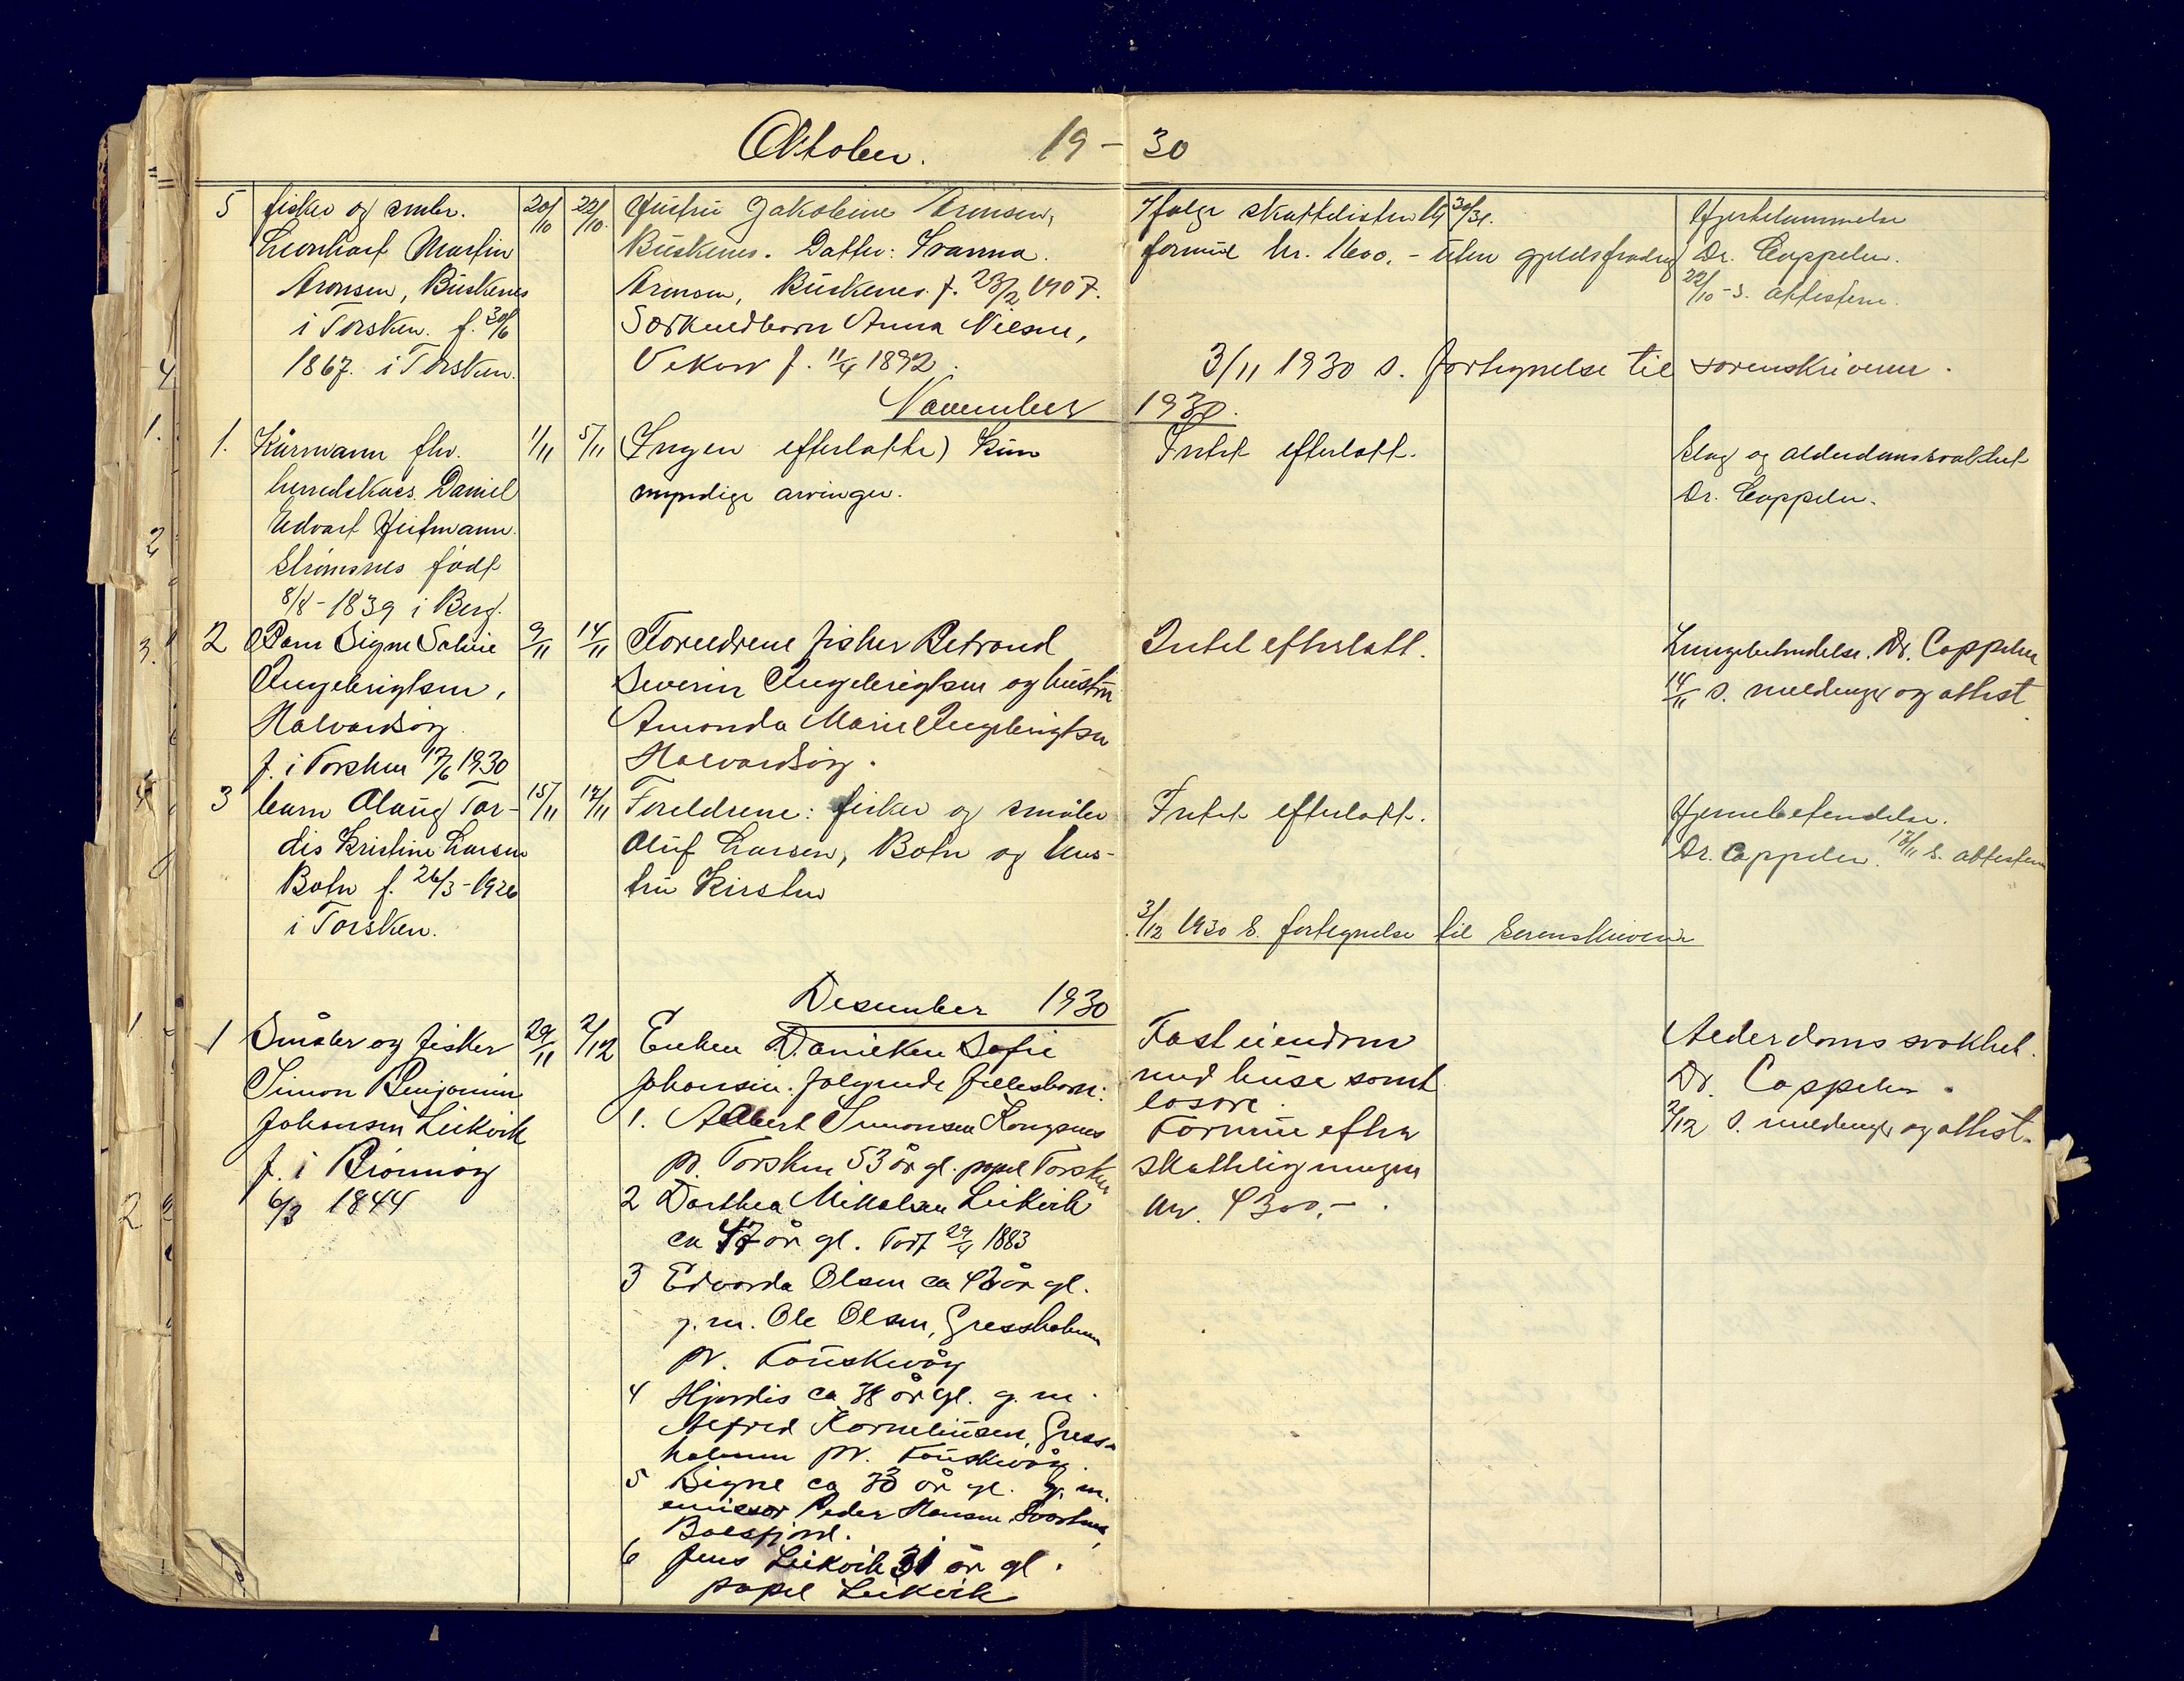 Oktober. 19-30
5 fisker og småbr.
Leonhart Martin
Aronsen, Buskenes
i Torsken. f. 30/6
1867. i Torsken.
20/10 22/10
Hustru Jakobine Aronsen,
Buskenes. Datter: Ivanna
Aronsen, Buskenes f. 23/2 1907.
Særkuldbarn Anna Nilsen,
f. 11/4 1892.
Ifølge skattelisten 30/31.
formue kr. 1600.- uten gjeldsfradrag
Hjertelammelse
Dr. Cappelen.
22/10 - s. attesten.
3/11 1930 s. fortegnelse til sorenskriveren.
November 1930.
1. Kårmann fhv.
herredskass. Daniel
Edvart Heitmann
Strømsnes født
8/8-1839 i Berg.
1/11 5/11
(Ingen efterlatte) Kun
myndige arvinger.
Intet efterlatt.
Slag og alderdomssvakhet
Dr. Cappelen.
2 Barn Signe
Ingebrigtsen,
Halvardsøy
f. i Torsken 17/6 1930
9/11 14/11
Foreldrene fisker Betrand
Severin Ingebrigtsen og hustru
Amanda Marie Ingebrigtsen
Halvardsøy.
Intet efterlatt.
Lungebetendelse. Dr. Cappelen
14/11 s. meldinger og attest
3 barn Olaug Tor-
dis Kristine Larsen
Botn f. 26/3-1926
i Torsken.
15/11 17/11
Foreldrene: fisker og småbr
Oluf Larsen, Botn og hus-
tru Kirsten
Intet efterlatt.
Hjernebetendelse.
Dr. Cappelen. 17/11 s. attesten
3/12 1930 s. fortegnelse til sorenskriveren
Desember 1930
1 Småbr og fisker
Simon Benjamin
Johansen Leikvik
f. i
6/3 1844
29/11 2/12
Enken Daniken Sofie
Johansen. følgende fellesbarn:
1. Albert Simonsen Kongsnes
pr. Torsken 53 år gl. popel Torsken
2 Dorthea Mikalsen Leikvik
ca 47 år gl. født 29/4 1883
3 Edvarda Olsen ca 42 år gl.
g.m. Ole Olsen, Gressholmen
pr. Fauskevåg
4 Hjørdis ca 38 år gl. g.m.
Alfred Korneliussen, Gress-
holmen pr. Fauskevåg.
5 Signe ca 33 år gl. g.m.
emissær Peder Hansen, Svartnes,
Balsfjord.
6 Jens Leikvik 31 år gl.
popel Leikvik
Fast eiendom
med huse samt
løsøre.
Formue efter
skatteligningen
kr. 4300,-
Alderdomssvakhet.
Dr. Cappelen.
2/12 s. meldinger og attest.